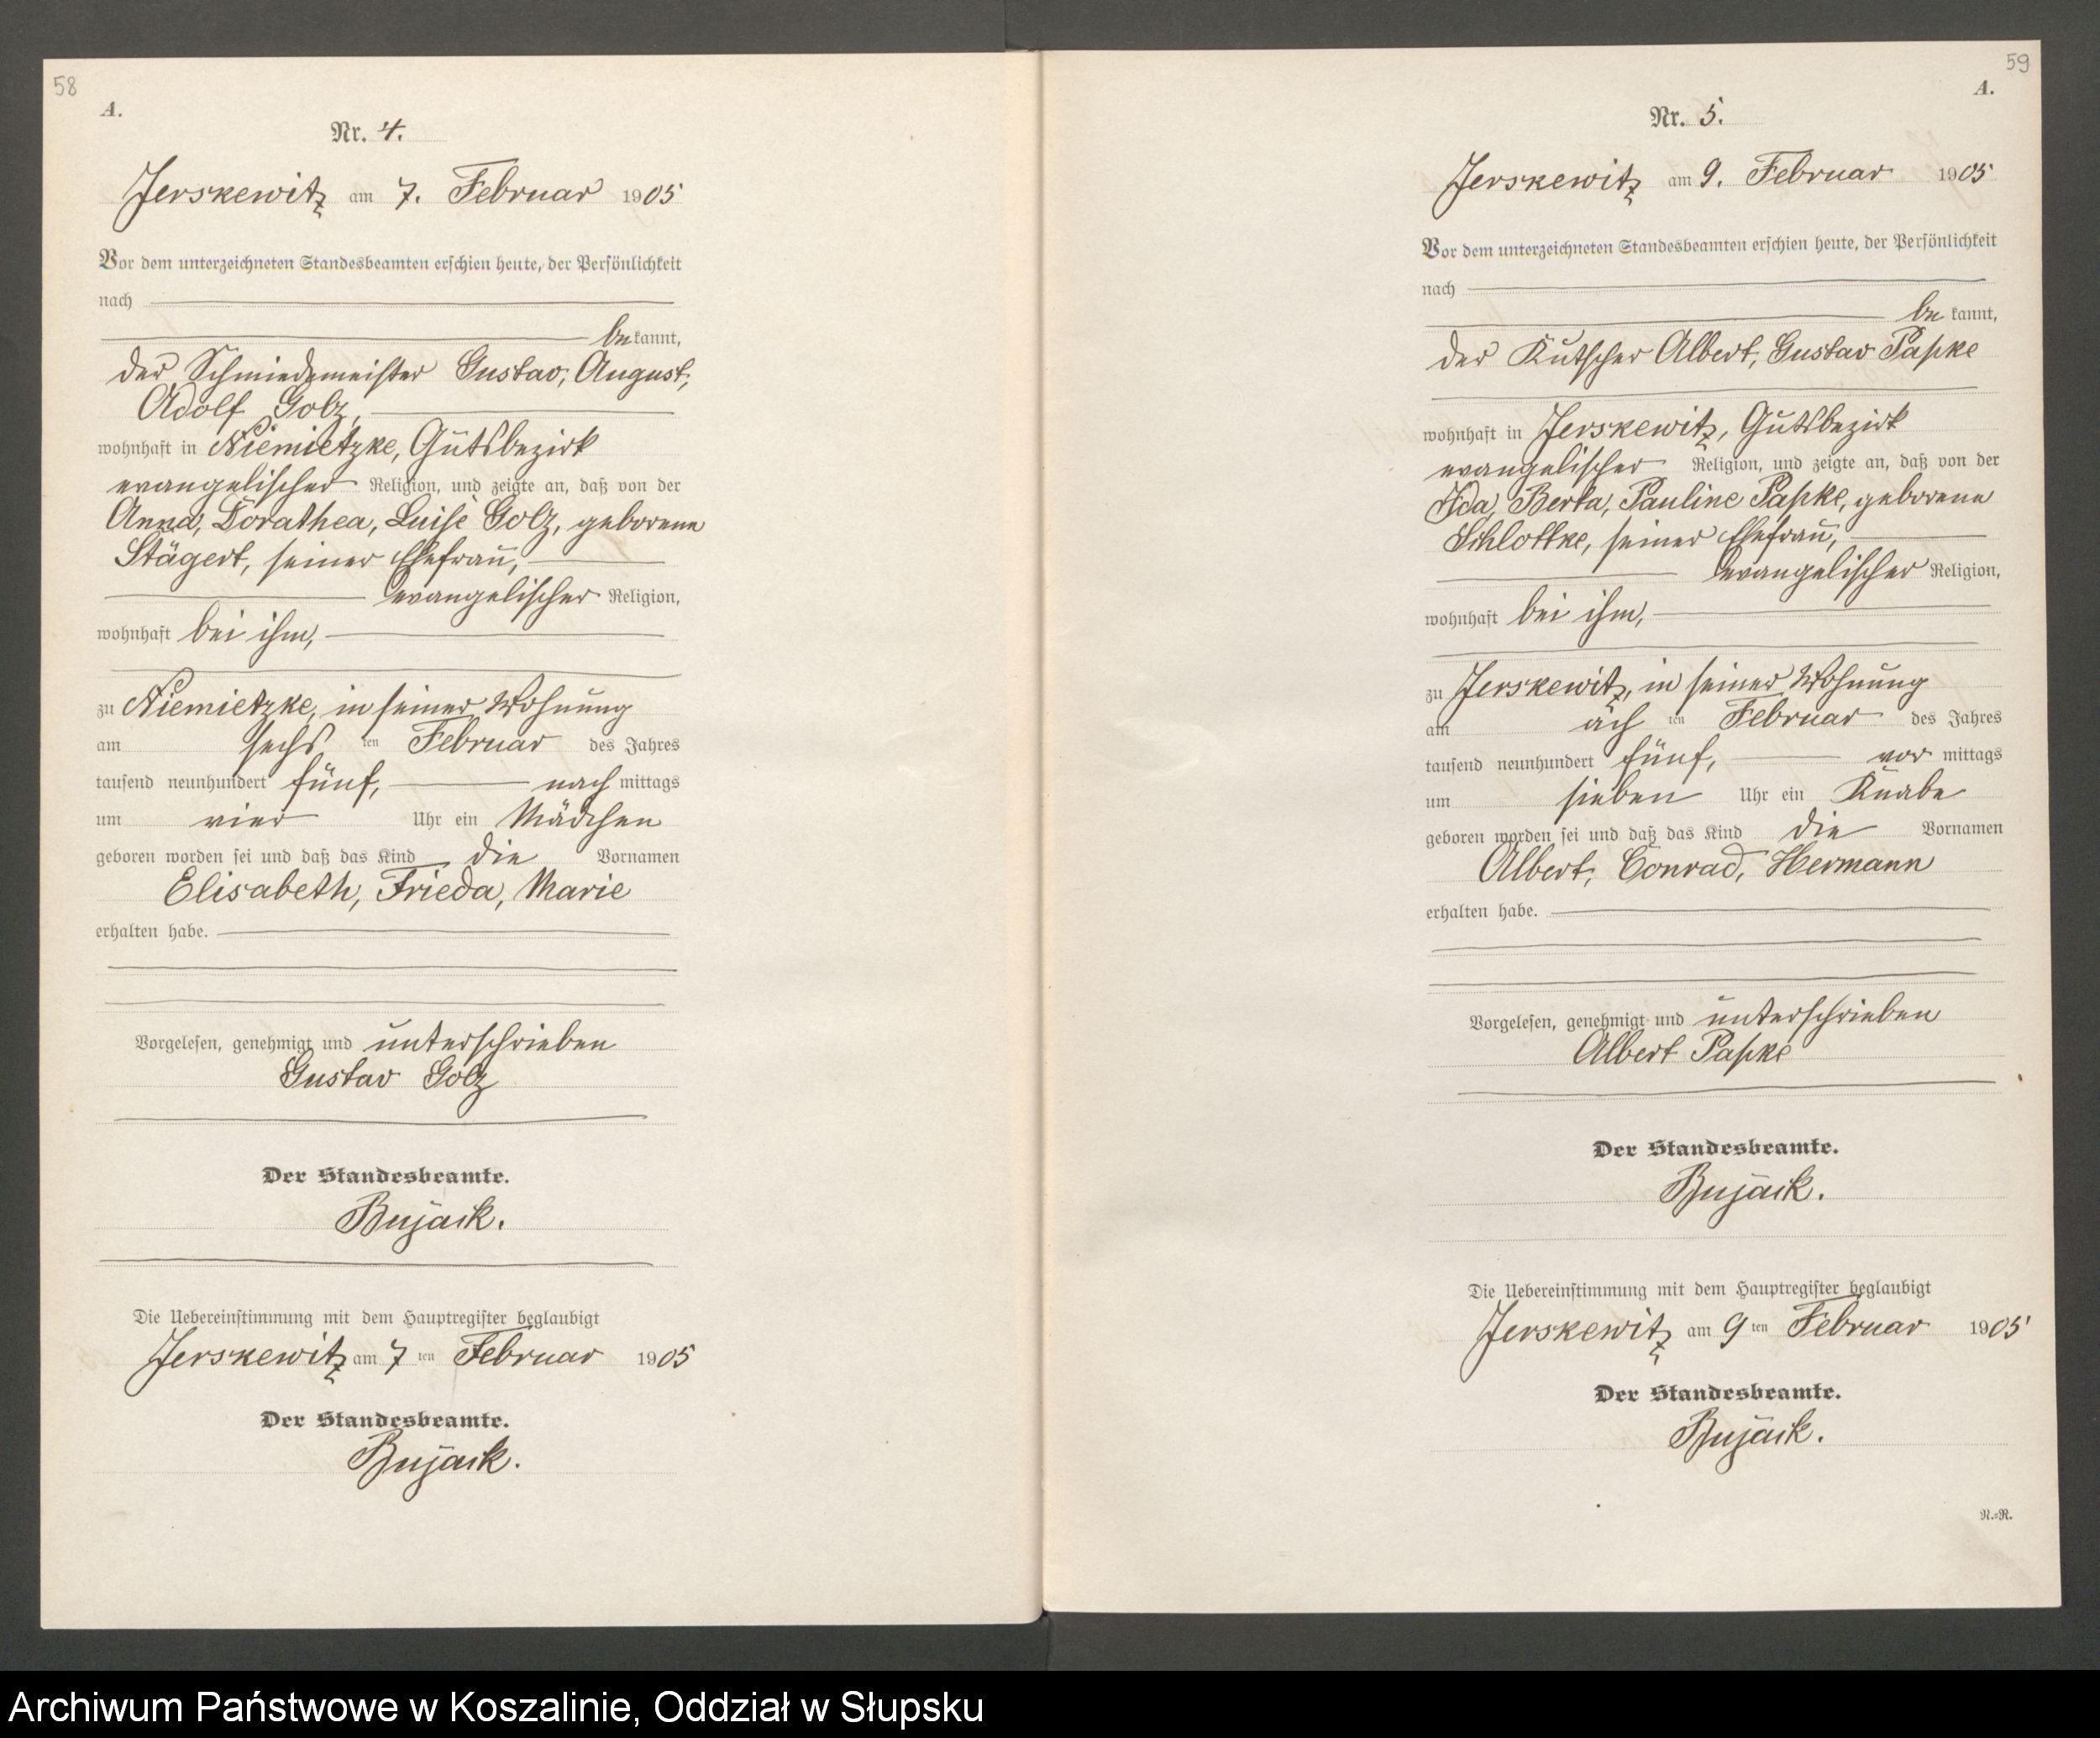 58
A.
Nr. 4.
Jerskewitz am 7. Februar 1905
Vor dem unterzeichneten Standesbeamten erschien heute, der Persönlichkeit
nach
be kannt,
der Schmiedemeister Gustav, August,
Adolf Golz,
wohnhaft in Niemietzke, Gutsbezirk
evangelischer Religion, und zeigte an, daß von der
Anna, Dorathea, Luise Golz, geborene
Stägert, seiner Ehefrau,
evangelischer Religion,
wohnhaft bei ihm,
zu Niemietzke, in seiner Wohnung
am sechs ten Februar des Jahres
tausend neunhundert fünf, nach mittags
um vier Uhr ein Mädchen
geboren worden sei und daß das Kind die Vornamen
Elisabeth, Frieda, Marie
erhalten habe.
Vorgelesen, genehmigt und unterschrieben
Gustav Golz
Der Standesbeamte.
Bujack.
Die Uebereinstimmung mit dem Hauptregister beglaubigt
Jerskewitz am 7 ten Februar 1905
Der Standesbeamte.
Bujack.
59
A.
Nr. 5.
Jerskewitz am 9. Februar 1905
Vor dem unterzeichneten Standesbeamten erschien heute, der Persönlichkeit
nach
be kannt,
der Kutscher Albert, Gustav Papke
wohnhaft in Jerskewitz, Gutsbezirk
evangelischer Religion, und zeigte an, daß von der
Ida, Berta, Pauline Papke, geborene
Schlottke, seiner Ehefrau,
evangelischer Religion,
wohnhaft bei ihm,
zu Jerskewitz, in seiner Wohnung
am ach ten Februar des Jahres
tausend neunhundert fünf, vor mittags
um sieben Uhr ein Knabe
geboren worden sei und daß das Kind die Vornamen
Albert, Conrad, Hermann
erhalten habe.
Vorgelesen, genehmigt und unterschrieben
Albert Papke
Der Standesbeamte.
Bujack.
Die Uebereinstimmung mit dem Hauptregister beglaubigt
Jerskewitz am 9 ten Februar 1905
Der Standesbeamte.
Bujack.
N.=R.
Archiwum Państwowe w Koszalinie, Oddział w Słupsku